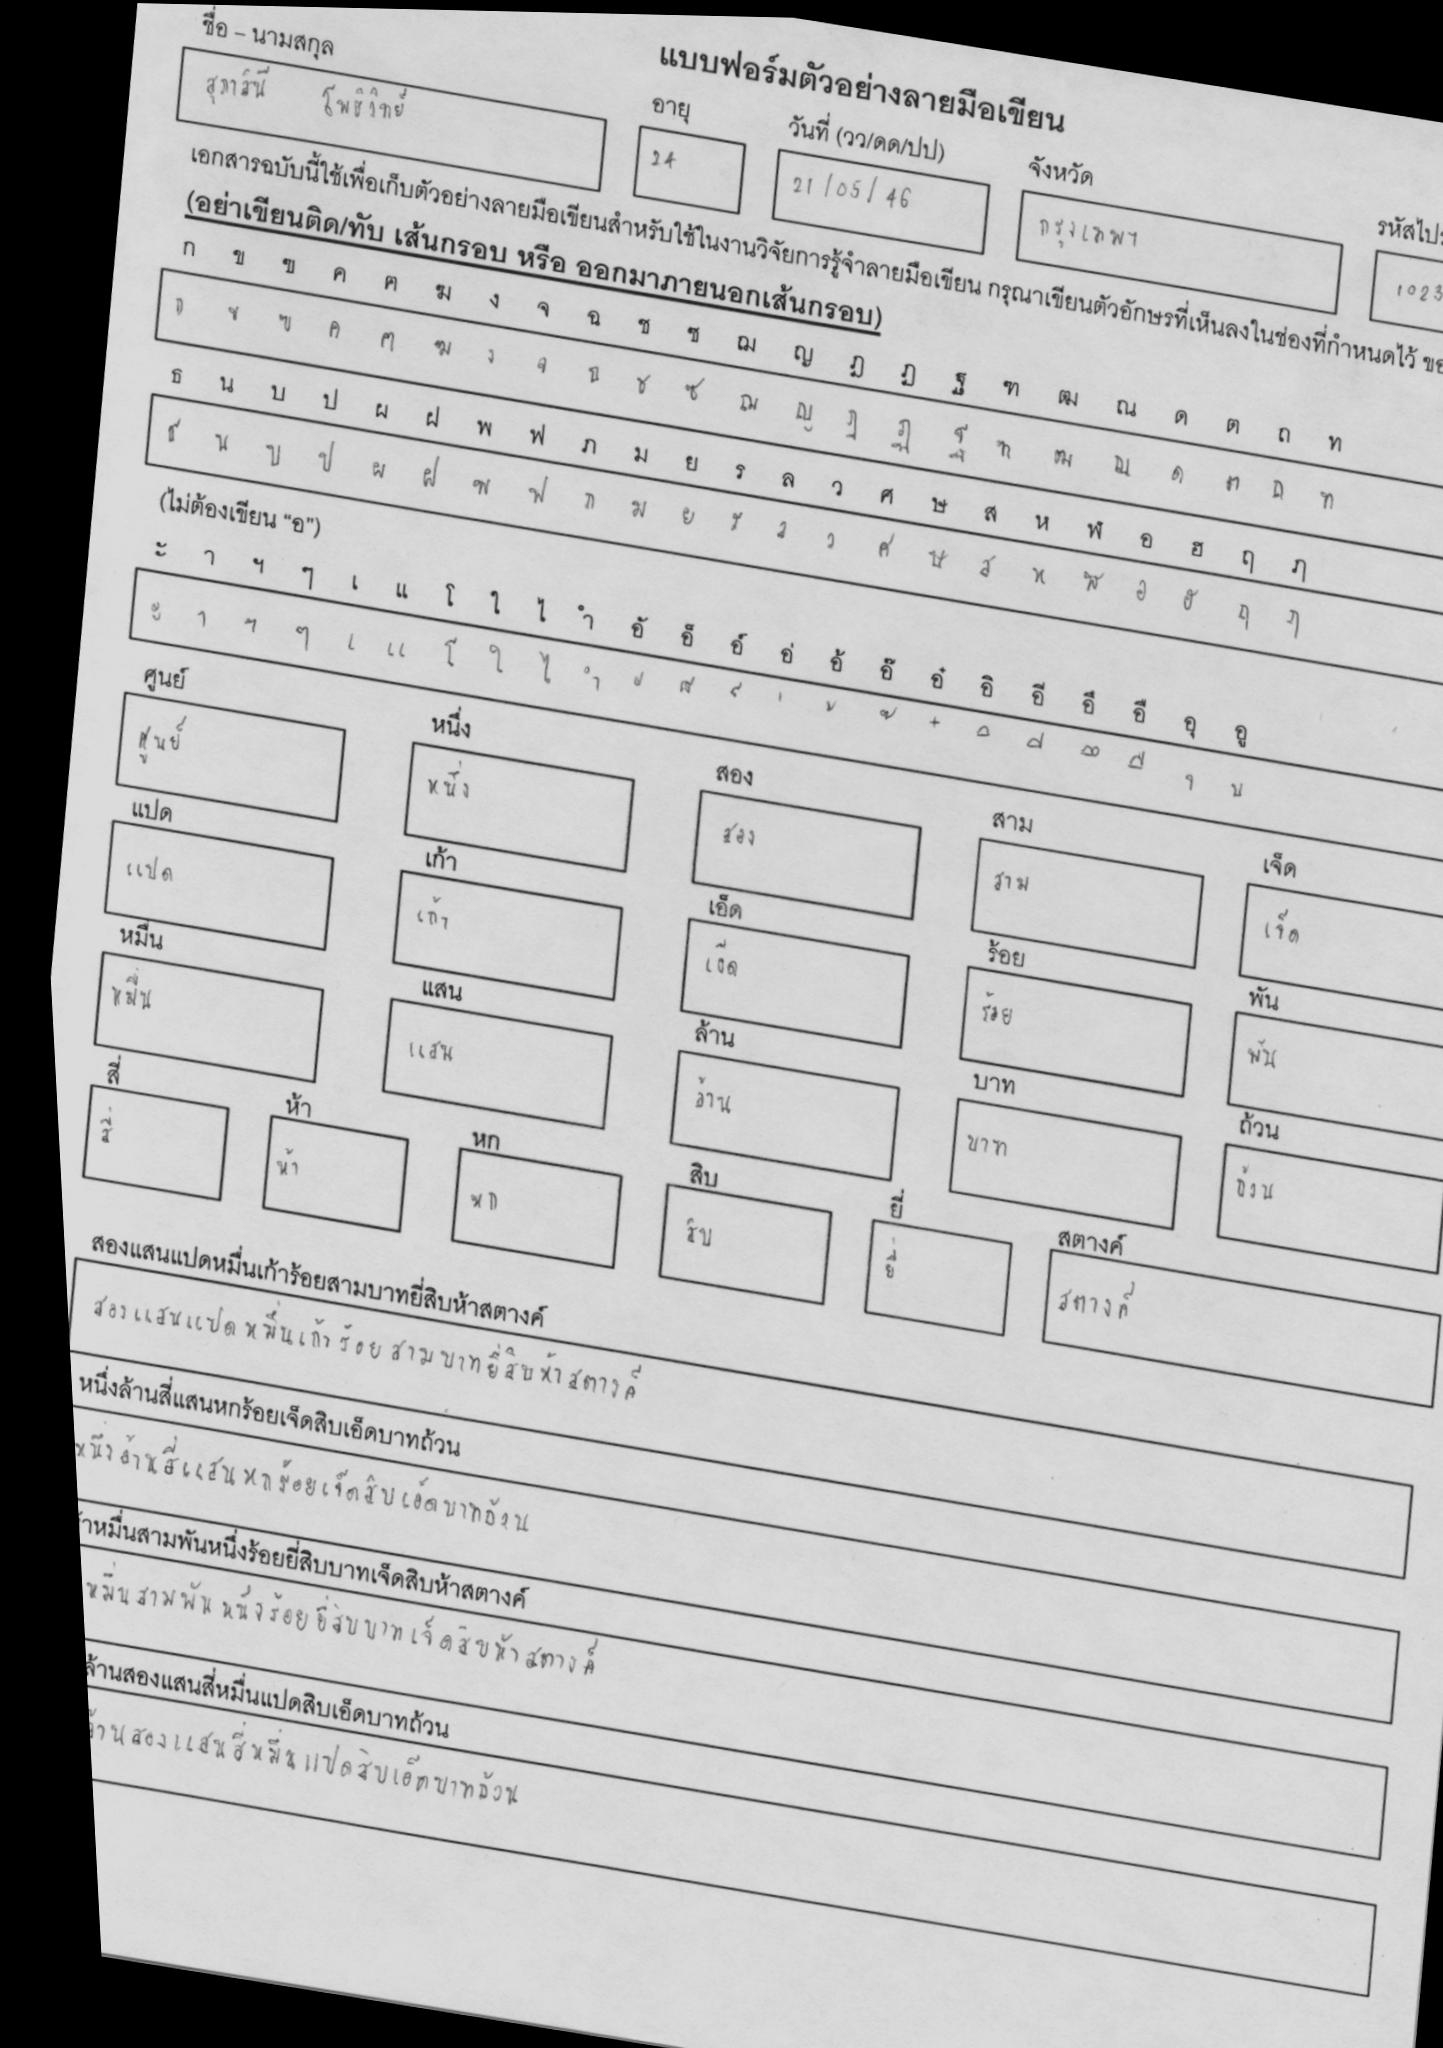 แบบฟอร์มตัวอย่างลายมือเขียน
ชื่อ – นามสกุล
อายุ
วันที่ (วว/ดด/ปป)
จังหวัด
สุภาวินี โพธิวิทย์
24
21/05/46
กรุงเทพฯ
1023
เอกสารฉบับนี้ใช้เพื่อเก็บตัวอย่างลายมือเขียนสำหรับใช้ในงานวิจัยการรู้จำลายมือเขียน กรุณาเขียนตัวอักษรที่เห็นลงในช่องที่กำหนดไว้
(อย่าเขียนติด/ทับ เส้นกรอบ หรือ ออกมาภายนอกเส้นกรอบ)
ก ข ฃ ค ฅ ฆ ง จ ฉ ช ซ ฌ ญ ฎ ฏ ฐ ฑ ฒ ณ ด ต ถ ท
ก ข ฃ ค ฅ ฆ ง จ ฉ ช ซ ฌ ญ ฎ ฏ ฐ ฑ ฒ ณ ด ต ถ ท
ธ น บ ป ผ ฝ พ ฟ ภ ม ย ร ล ว ศ ษ ส ห ฬ อ ฮ ฤ ฦ
ธ น บ ป ผ ฝ พ ฟ ภ ม ย ร ล ว ศ ษ ส ห ฬ อ ฮ ฤ ฦ
(ไม่ต้องเขียน “อ”)
ะ า ฯ ๆ เ แ โ ใ ไ ำ อั อ็ อ์ อ่ อ้ อ๊ อ๋ อิ อี อึ อื อุ อู
ะ า ฯ ๆ เ แ โ ใ ไ ำ ั ็ ์ ่ ้ ๊ ๋ ิ ี ึ ื ุ ู
ศูนย์ หนึ่ง สอง สาม เจ็ด
ศูนย์ หนึ่ง สอง สาม เจ็ด
แปด เก้า เอ็ด ร้อย พัน
แปด เก้า เอ็ด ร้อย พัน
หมื่น แสน ล้าน บาท ถ้วน
หมื่น แสน ล้าน บาท ถ้วน
สี่ ห้า หก สิบ ยี่ สตางค์
สี่ ห้า หก สิบ ยี่ สตางค์
สองแสนแปดหมื่นเก้าร้อยสามบาทยี่สิบห้าสตางค์
สองแสนแปดหมื่นเก้าร้อยสามบาทยี่สิบห้าสตางค์
หนึ่งล้านสี่แสนหกร้อยเจ็ดสิบเอ็ดบาทถ้วน
หนึ่งล้านสี่แสนหกร้อยเจ็ดสิบเอ็ดบาทถ้วน
หมื่นสามพันหนึ่งร้อยยี่สิบบาทเจ็ดสิบห้าสตางค์
หมื่นสามพันหนึ่งร้อยยี่สิบบาทเจ็ดสิบห้าสตางค์
ล้านสองแสนสี่หมื่นแปดสิบเอ็ดบาทถ้วน
ล้านสองแสนสี่หมื่นแปดสิบเอ็ดบาทถ้วน